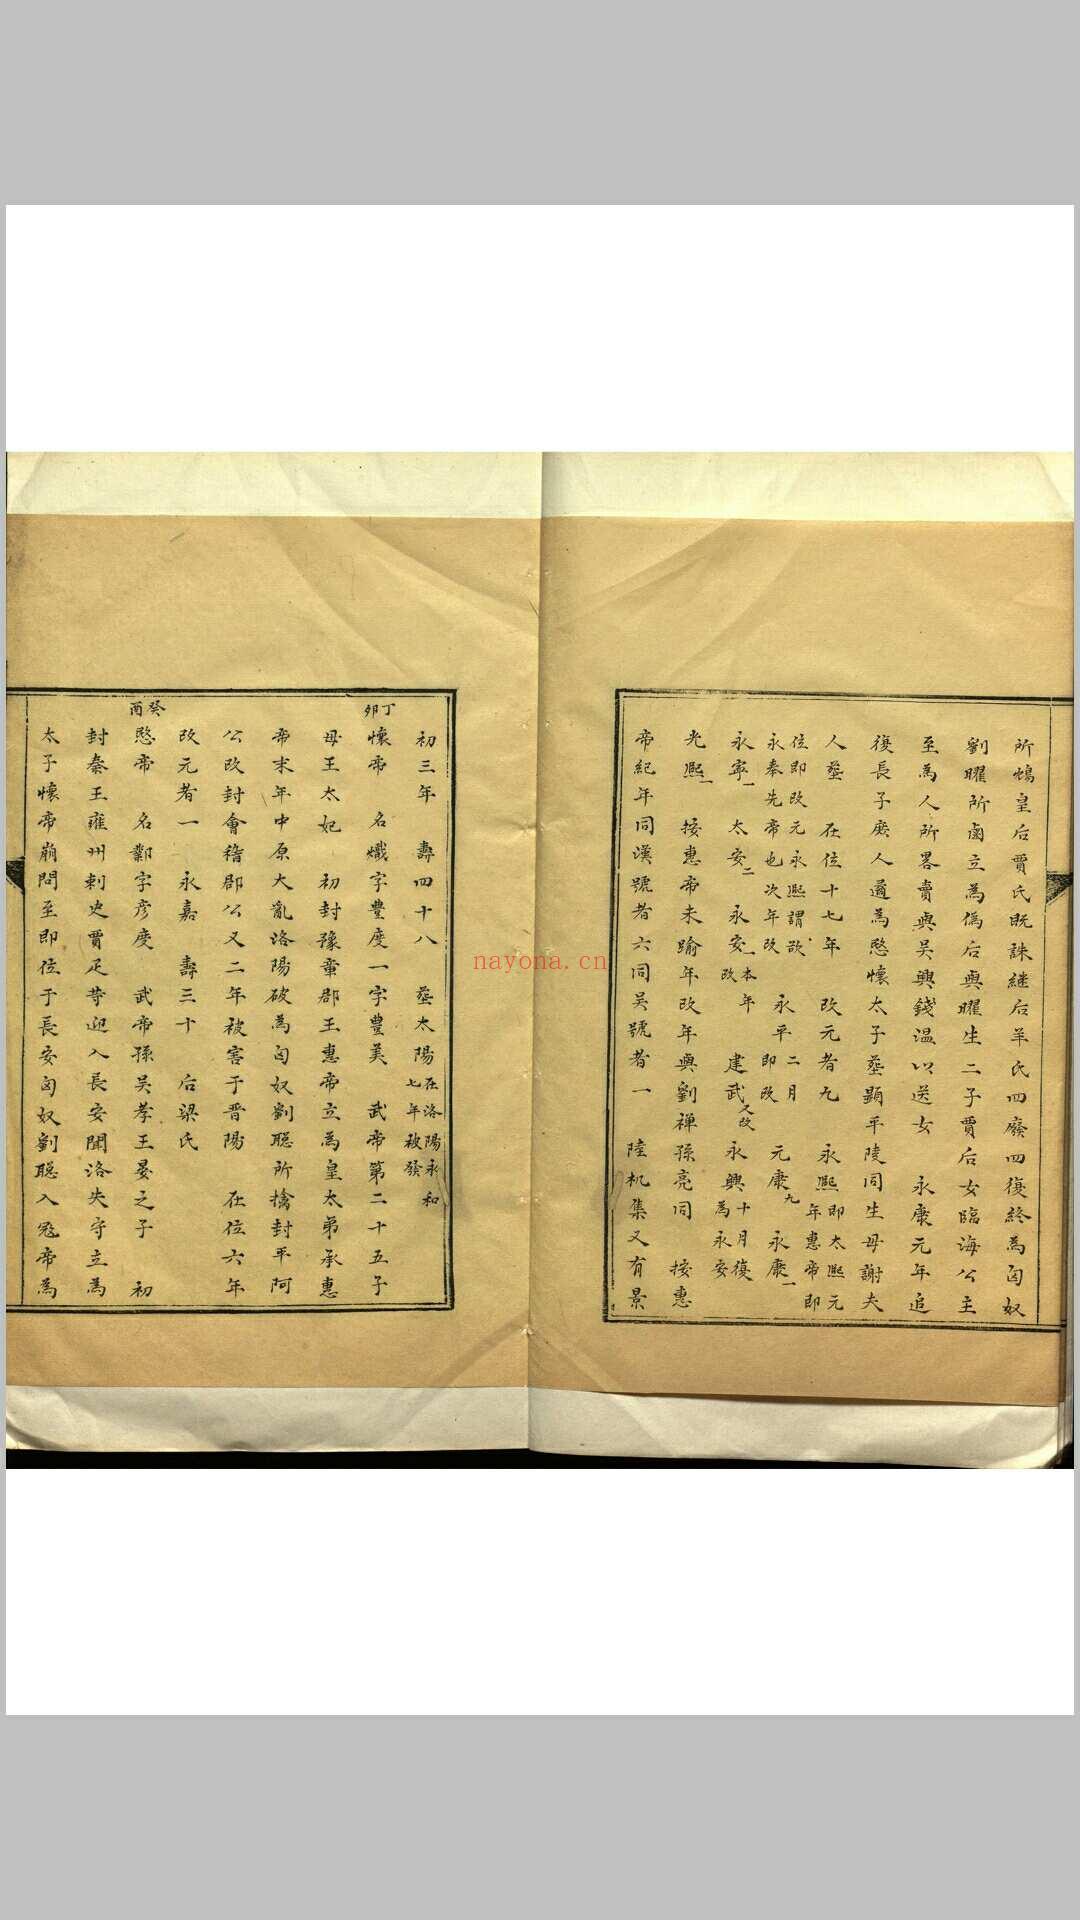 所鴆皇后賈氏既誅繼后羊氏四廢四復終為匈奴
劉曜所鹵立為偽后與曜生二子賈后女臨海公主
至為人所畧賣與吳興錢溫以送女 永康元年追
復長子庻人遹為愍懷太子塟顯平陵同生母謝夫
人塟 在位十七年 改元者九 永熈即太熈元年惠帝即
位即改元永熈謂欲永奉先帝也次年改 永平二月即改 元康九 永康一
永寧一 太安二 永安一本年改 建武又改 永興十月復為永安
光熈一 按惠帝未踰年改年與劉禅孫亮同 按惠
帝紀年同漢號者六同吳號者一 陸机集又有景
初三年 壽四十八 塟太陽在洛陽永和七年被發
丁卯
懷帝 名熾字豊度一字豊美 武帝第二十五子
母王太妃 初封豫章郡王惠帝立為皇太弟承惠
帝末年中原大亂洛陽破為匈奴劉聡所擒封平阿
公改封會稽郡公又二年被害于晋陽 在位六年
改元者一 永嘉 壽三十 后梁氏
癸酉
愍帝 名鄴字彦度 武帝孫吳孝王晏之子 初
封秦王雍州刺史賈疋等迎入長安聞洛失守立為
太子懷帝崩問至即位于長安匈奴劉聡入冦帝為
nayona.cn